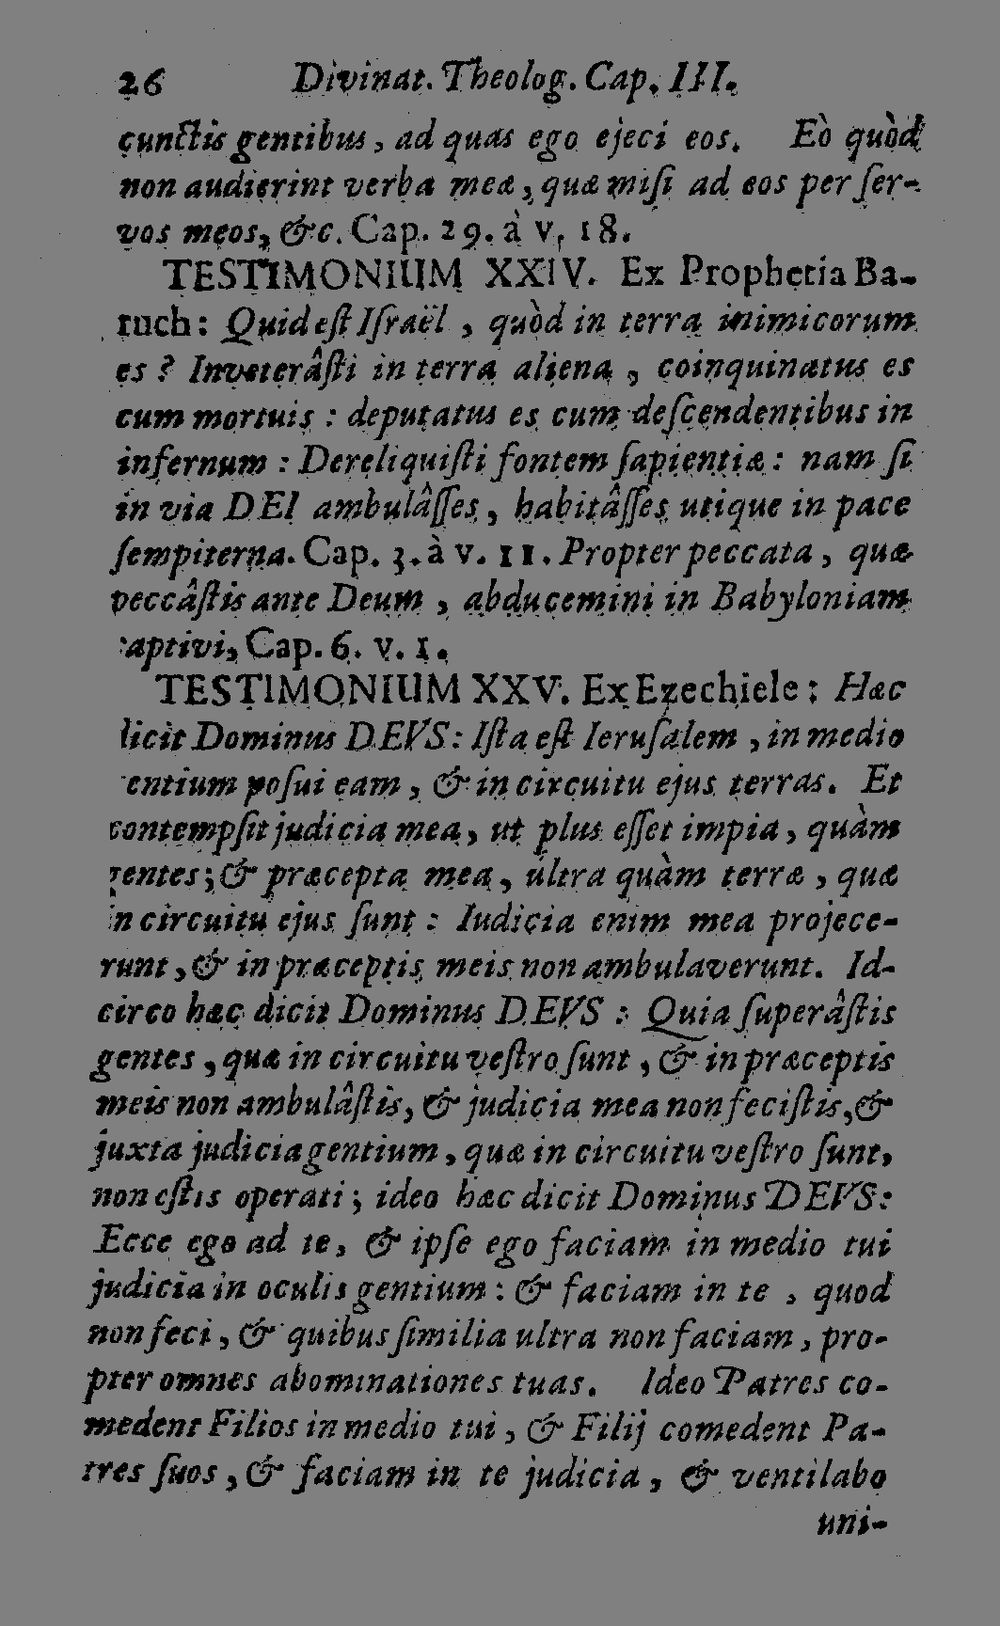 26 Divinat. Theolog. Cap. III.
cunctis gentibus, ad quas ego ejeci eos. Eò quòd
non audierint verba mea, quæ misi ad eos per ser-
vos meos, &c. Cap. 29. à v. 18.
TESTIMONIUM XXIV. Ex Prophetia Ba-
ruch: Quid est Israël, quòd in terra inimicorum
es? Inveterâsti in terra aliena, coinquinatus es
cum mortuis: deputatus es cum descendentibus in
infernum: Dereliquisti fontem sapientiæ: nam si
in via DEI ambulâsses, habitâsses utique in pace
sempiterna. Cap. 3. à v. 11. Propter peccata, quæ
peccâstis ante Deum, abducemini in Babyloniam
captivi, Cap. 6. v. 1.
TESTIMONIUM XXV. Ex Ezechiele: Hæc
dicit Dominus DEVS: Ista est Ierusalem, in medio
gentium posui eam, & in circuitu ejus terras. Et
contempsit judicia mea, ut plus esset impia, quàm
gentes; & præcepta mea, ultra quàm terræ, quæ
in circuitu ejus sunt: Iudicia enim mea projece-
runt, & in præceptis meis non ambulaverunt. Id-
circo hæc dicit Dominus DEVS: Quia superâstis
gentes, quæ in circuitu vestro sunt, & in præceptis
meis non ambulâstis, & judicia mea non fecistis, &
juxta judicia gentium, quæ in circuitu vestro sunt,
non estis operati; ideo hæc dicit Dominus DEVS:
Ecce ego ad te, & ipse ego faciam in medio tui
judicia in oculis gentium: & faciam in te, quod
non feci, & quibus similia ultra non faciam, pro-
pter omnes abominationes tuas. Ideo Patres co-
medent Filios in medio tui, & Filij comedent Pa-
tres suos, & faciam in te judicia, & ventilabo
uni-